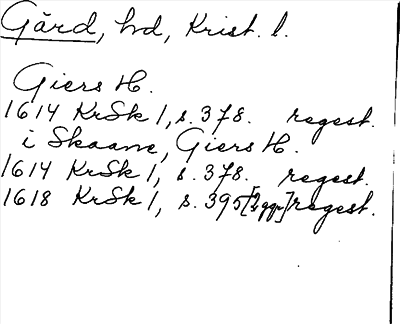 Gärd, hd, Krist. l.
Giers H.
1614 KrSk 1, s. 378. regest.
i Skaane, Giers H.
1614 KrSk 1, s. 378. regest.
1618 KrSk 1, s. 395 [2 ggr] regest.